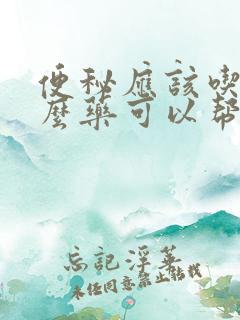 便秘應該喫
麼藥可以幫
忘記淫葉
未經同意禁止轉載